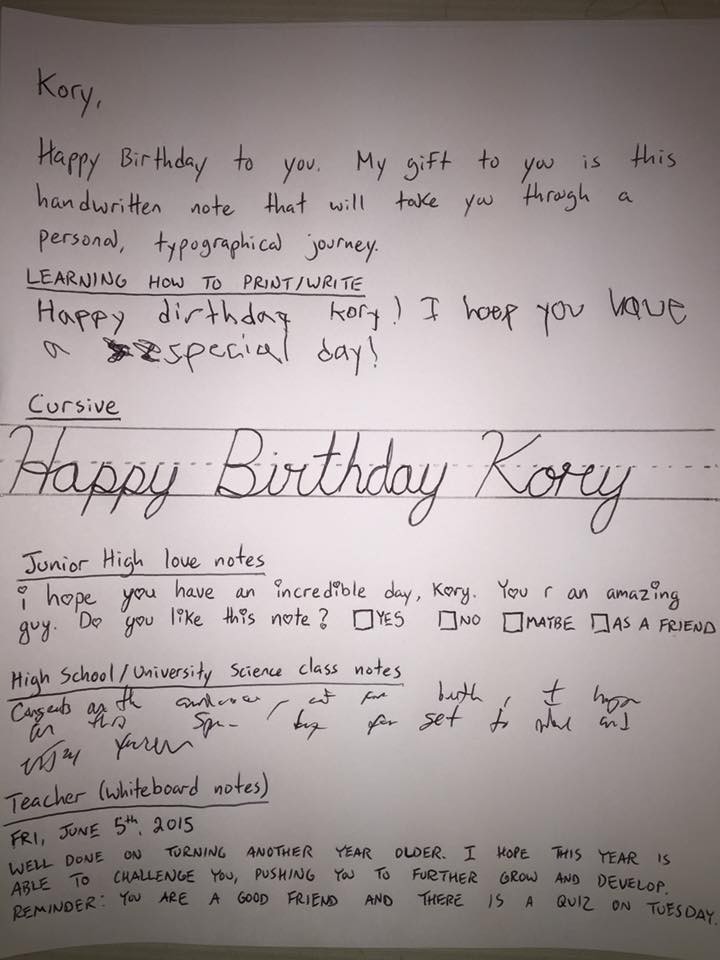 Kory,
Happy Birthday to you. My gift to you is this
handwritten note that will take you through a
personal, typographical journey.
LEARNING HOW TO PRINT/WRITE
Happy dirthday Kory! I hoep you have
a special day!
Cursive
Happy Birthday Korey
Junior High love notes
i hope you have an incredible day, Kory. You r an amazing
guy. Do you like this note? YES NO MAYBE AS A FRIEND
High School/University Science class notes
Teacher (whiteboard notes)
FRI, JUNE 5th, 2015
WELL DONE ON TURNING ANOTHER YEAR OLDER. I HOPE THIS YEAR IS
ABLE TO CHALLENGE YOU, PUSHING YOU TO FURTHER GROW AND DEVELOP.
REMINDER: YOU ARE A GOOD FRIEND AND THERE IS A QUIZ ON TUESDAY.